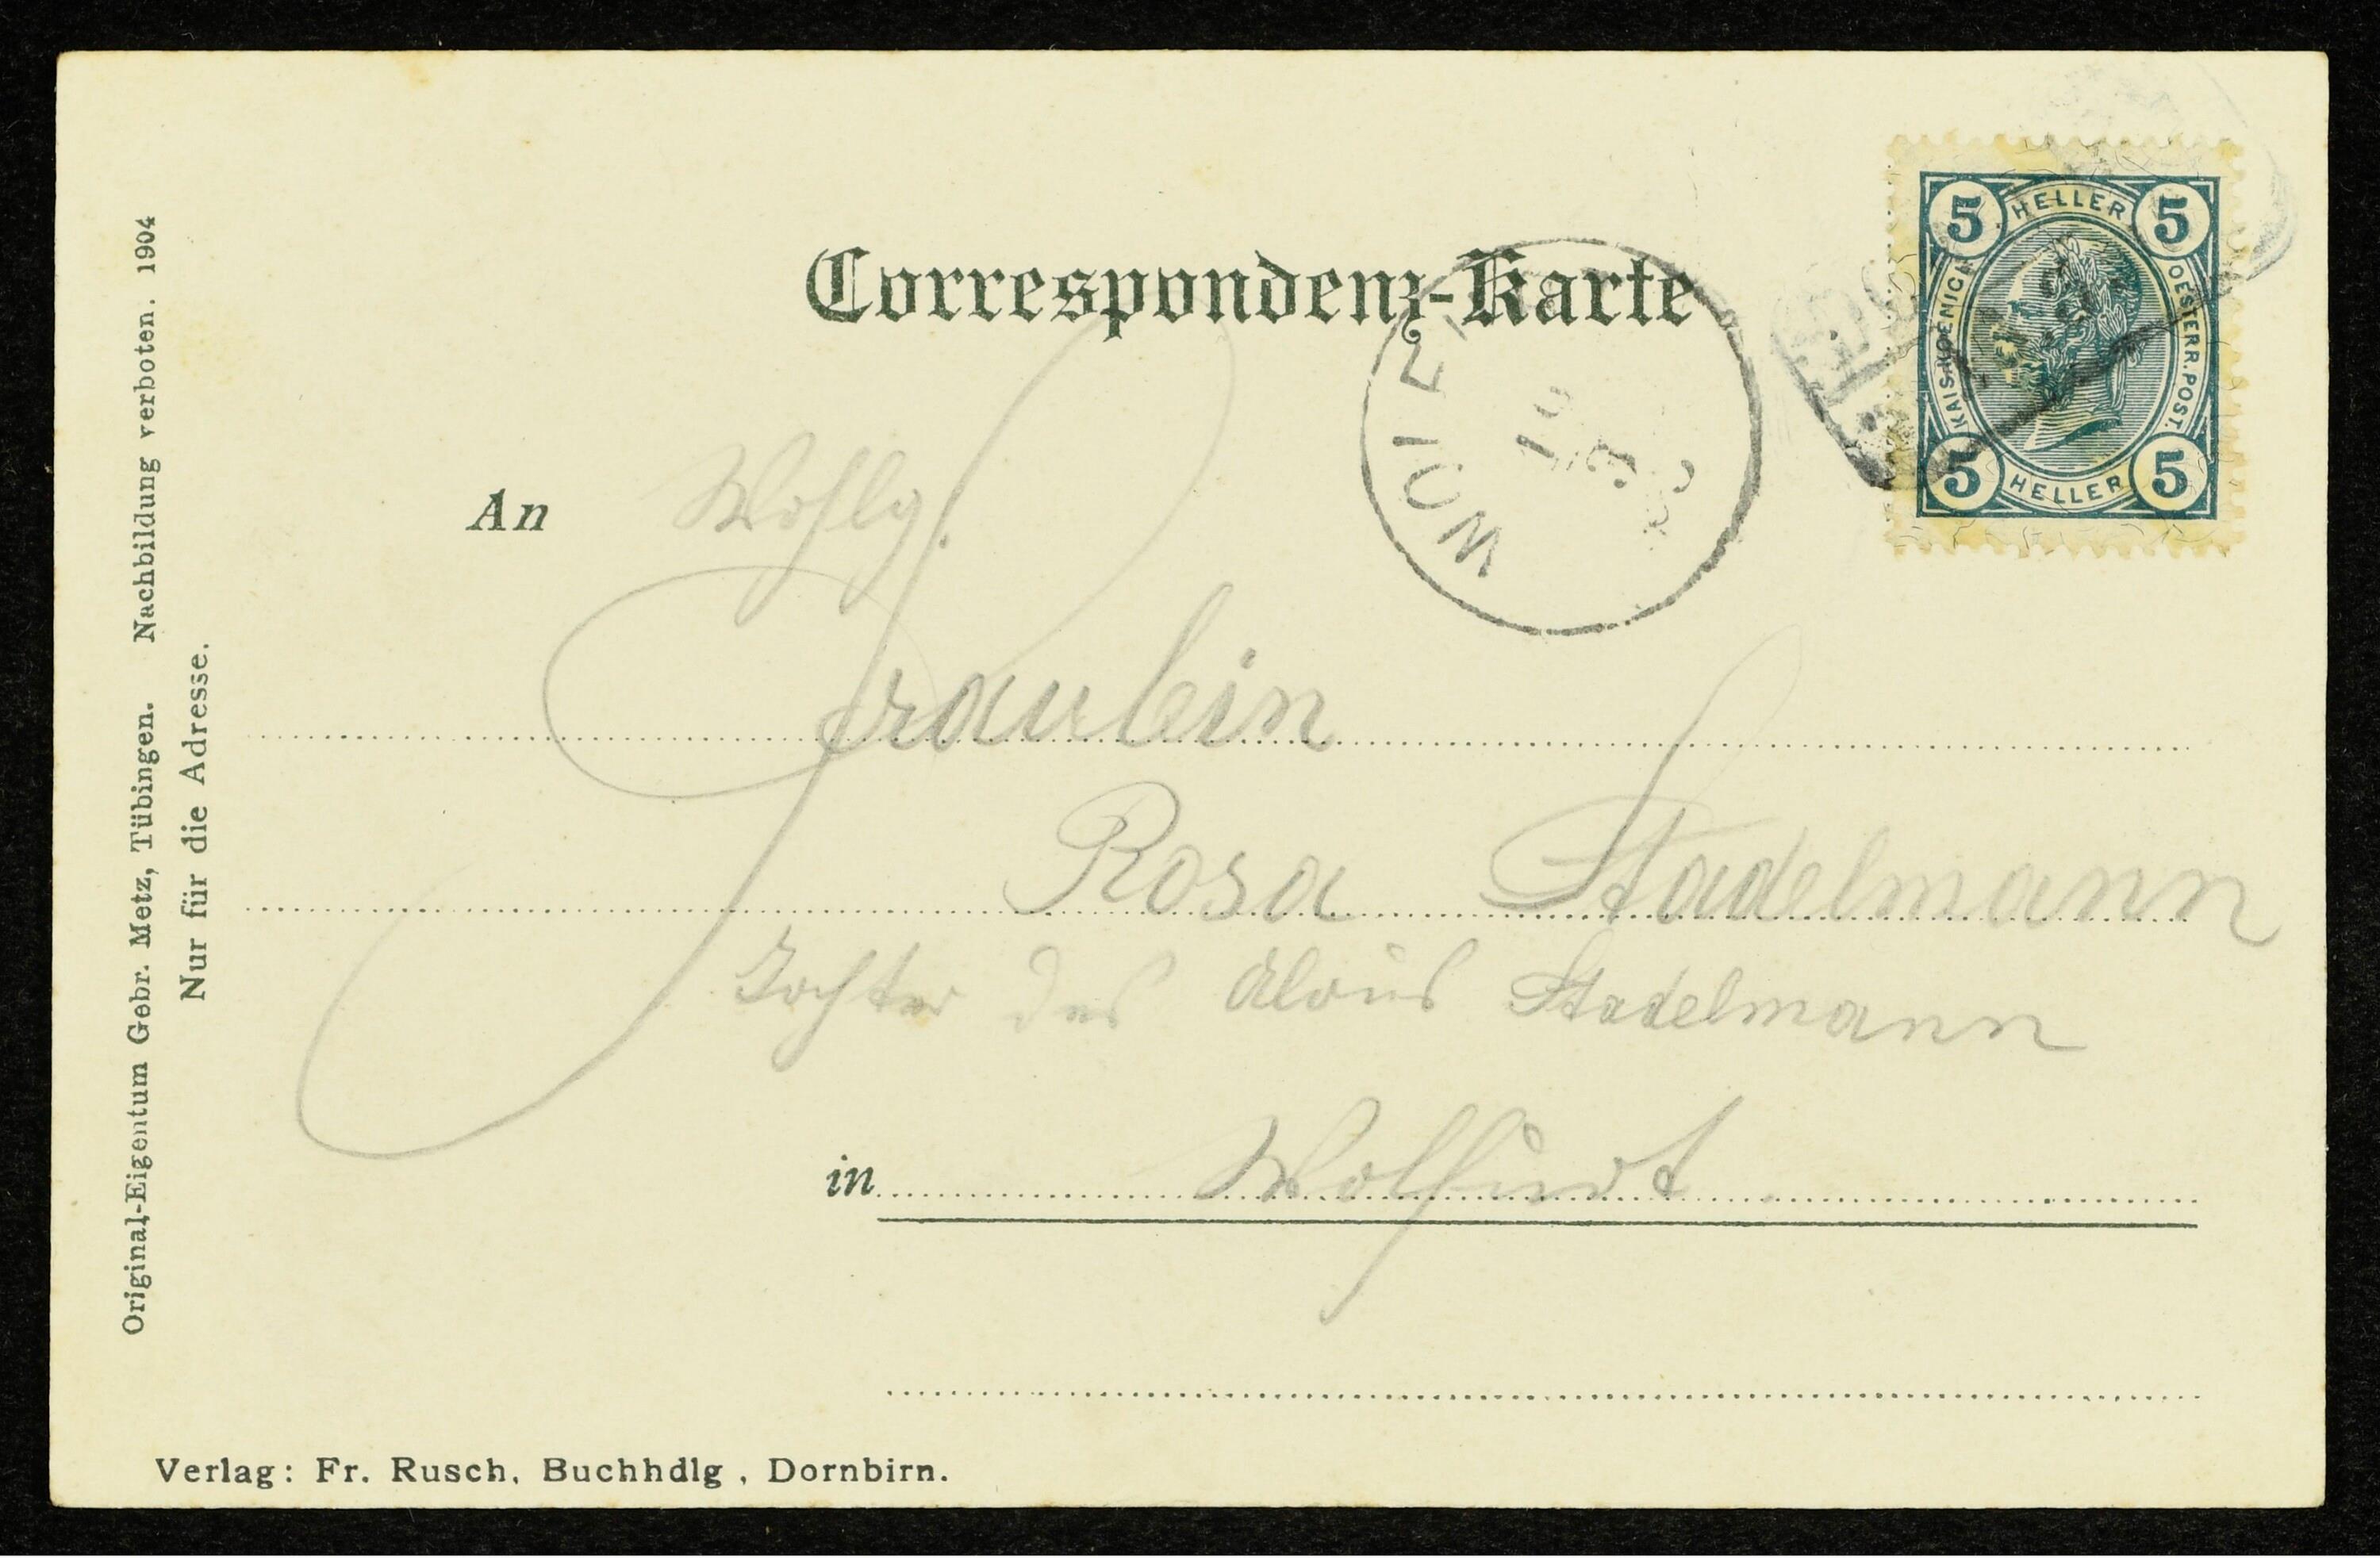 Correspondenz-Karte
5 HELLER 5
KAIS. KOENIGL. OESTERR. POST.
5 HELLER 5
WOLF
An Wohlg.
Fräulein
Rosa Stadelmann
Tochter des Alois Stadelmann
in Wolfurt
Original-Eigentum Gebr. Metz, Tübingen. Nachbildung verboten. 1904
Nur für die Adresse.
Verlag: Fr. Rusch, Buchhdlg, Dornbirn.